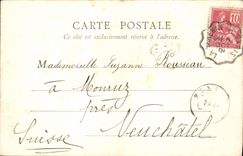 CARTE POSTALE
Ce côté est exclusivement réservé à l'adresse.
10
Mademoiselle Suzanne Rousseau
à Monruz
près
Neuchâtel
Suisse